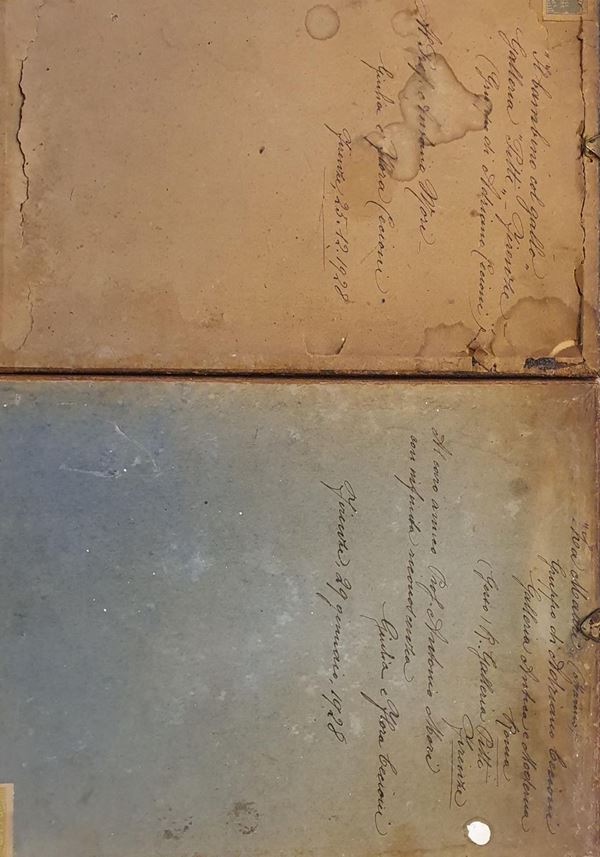 Il bambino col gallo.
Galleria "Pitti" - Firenze
(Gruppo di Adriano Cecioni)
Al Prof. Antonio Mori -
Giulia e Flora Cecioni.
Firenze, 25.12.1928
"La Madre" (
Gruppo di Adriano Cecioni
Galleria Antica e Moderna
Roma
(Gesso) R. Galleria Pitti
Firenze
Al caro amico Prof. Antonio Mori
con infinita riconoscenza
Giulia e Flora Cecioni
Firenze, 29 gennaio, 1928